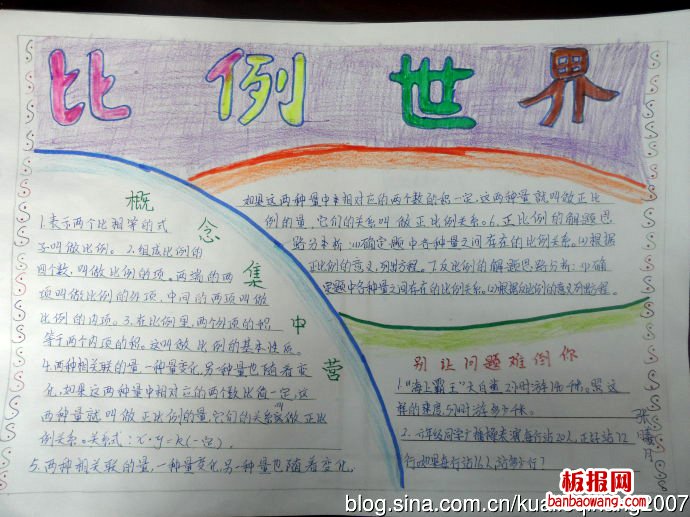 比例世界
概念集中营
1.表示两个比相等的式
子叫做比例。2.组成比例的
四个数,叫做比例的项。两端的两
项叫做比例的外项,中间的两项叫做
比例的内项。3.在比例里,两个外项的积
等于两个内项的积。这叫做比例的基本性质。
4.两种相关联的量,一种量变化,另一种量也随着变
化,如果这两种量中相对应的两个数比值一定,这
两种量就叫做正比例的量,它们的关系叫做正比
例关系。关系式:x·y=k(一定)
5.两种相关联的量,一种量变化,另一种量也随着变化,
如果这两种量中相对应的两个数的积一定,这两种量就叫做正比
例的量,它们的关系叫做正比例关系。6.正比例的解题思
路分析:(1)确定题中各种量之间存在的比例关系。(2)根据
正比例的意义,列出方程。7.反比例的解题思路分析:(1)确
定题中各种量之间存在的比例关系。(2)根据反比例的意义列出方程。
别让问题难倒你
1."海上霸王"大白鲨2小时游 千米。照这
样的速度,5小时游多少千米。
2.六年级同学广播操表演,每行站20人,正好站12
行,如果每行站16人,站多少行?
张曦月
板报网
banbaowang.com
blog.sina.com.cn/ 2007